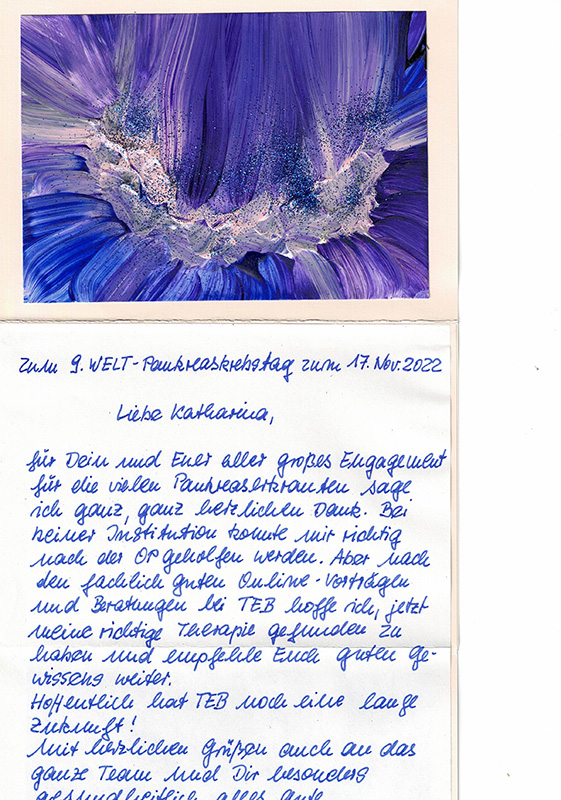 zum 9. WELT-Pankreaskrebstag zum 17. Nov. 2022
Liebe Katharina,
für Dein und Euer aller großes Engagement
für die vielen Pankreaserkrankten sage
ich ganz, ganz herzlichen Dank. Bei
keiner Institution konnte mir richtig
nach der OP geholfen werden. Aber nach
den fachlich guten Online-Vorträgen
und Beratungen bei TEB hoffe ich, jetzt
meine richtige Therapie gefunden zu
haben und empfehle Euch guten Ge-
wissens weiter.
Hoffentlich hat TEB noch eine lange
Zukunft!
Mit herzlichen Grüßen auch an das
ganze Team und Dir besonders
gesundheitlich alles Gute